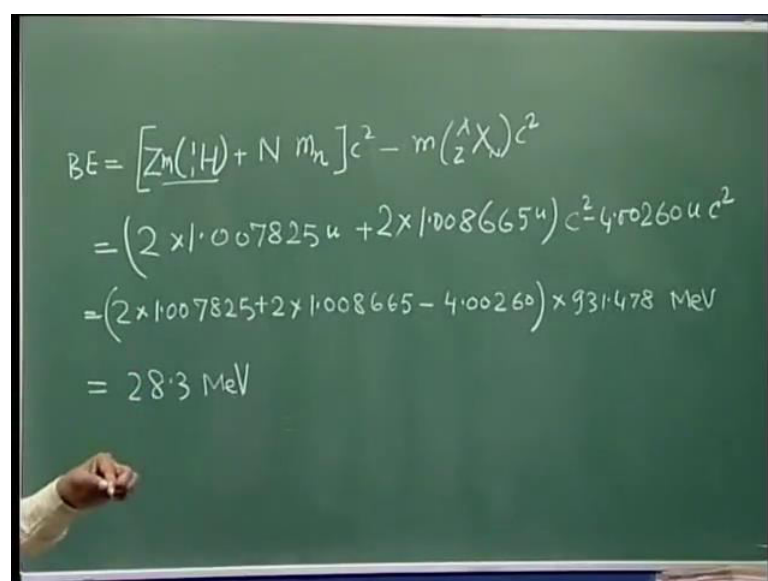 BE = [Zm(¹₁H) + N mₙ]c² − m(ᴬ_Z X_N)c²
= (2 × 1·007825u + 2 × 1·008665u) c² − 4·00260 u c²
= (2 × 1·007825 + 2 × 1·008665 − 4·00260) × 931·478 MeV
= 28·3 MeV